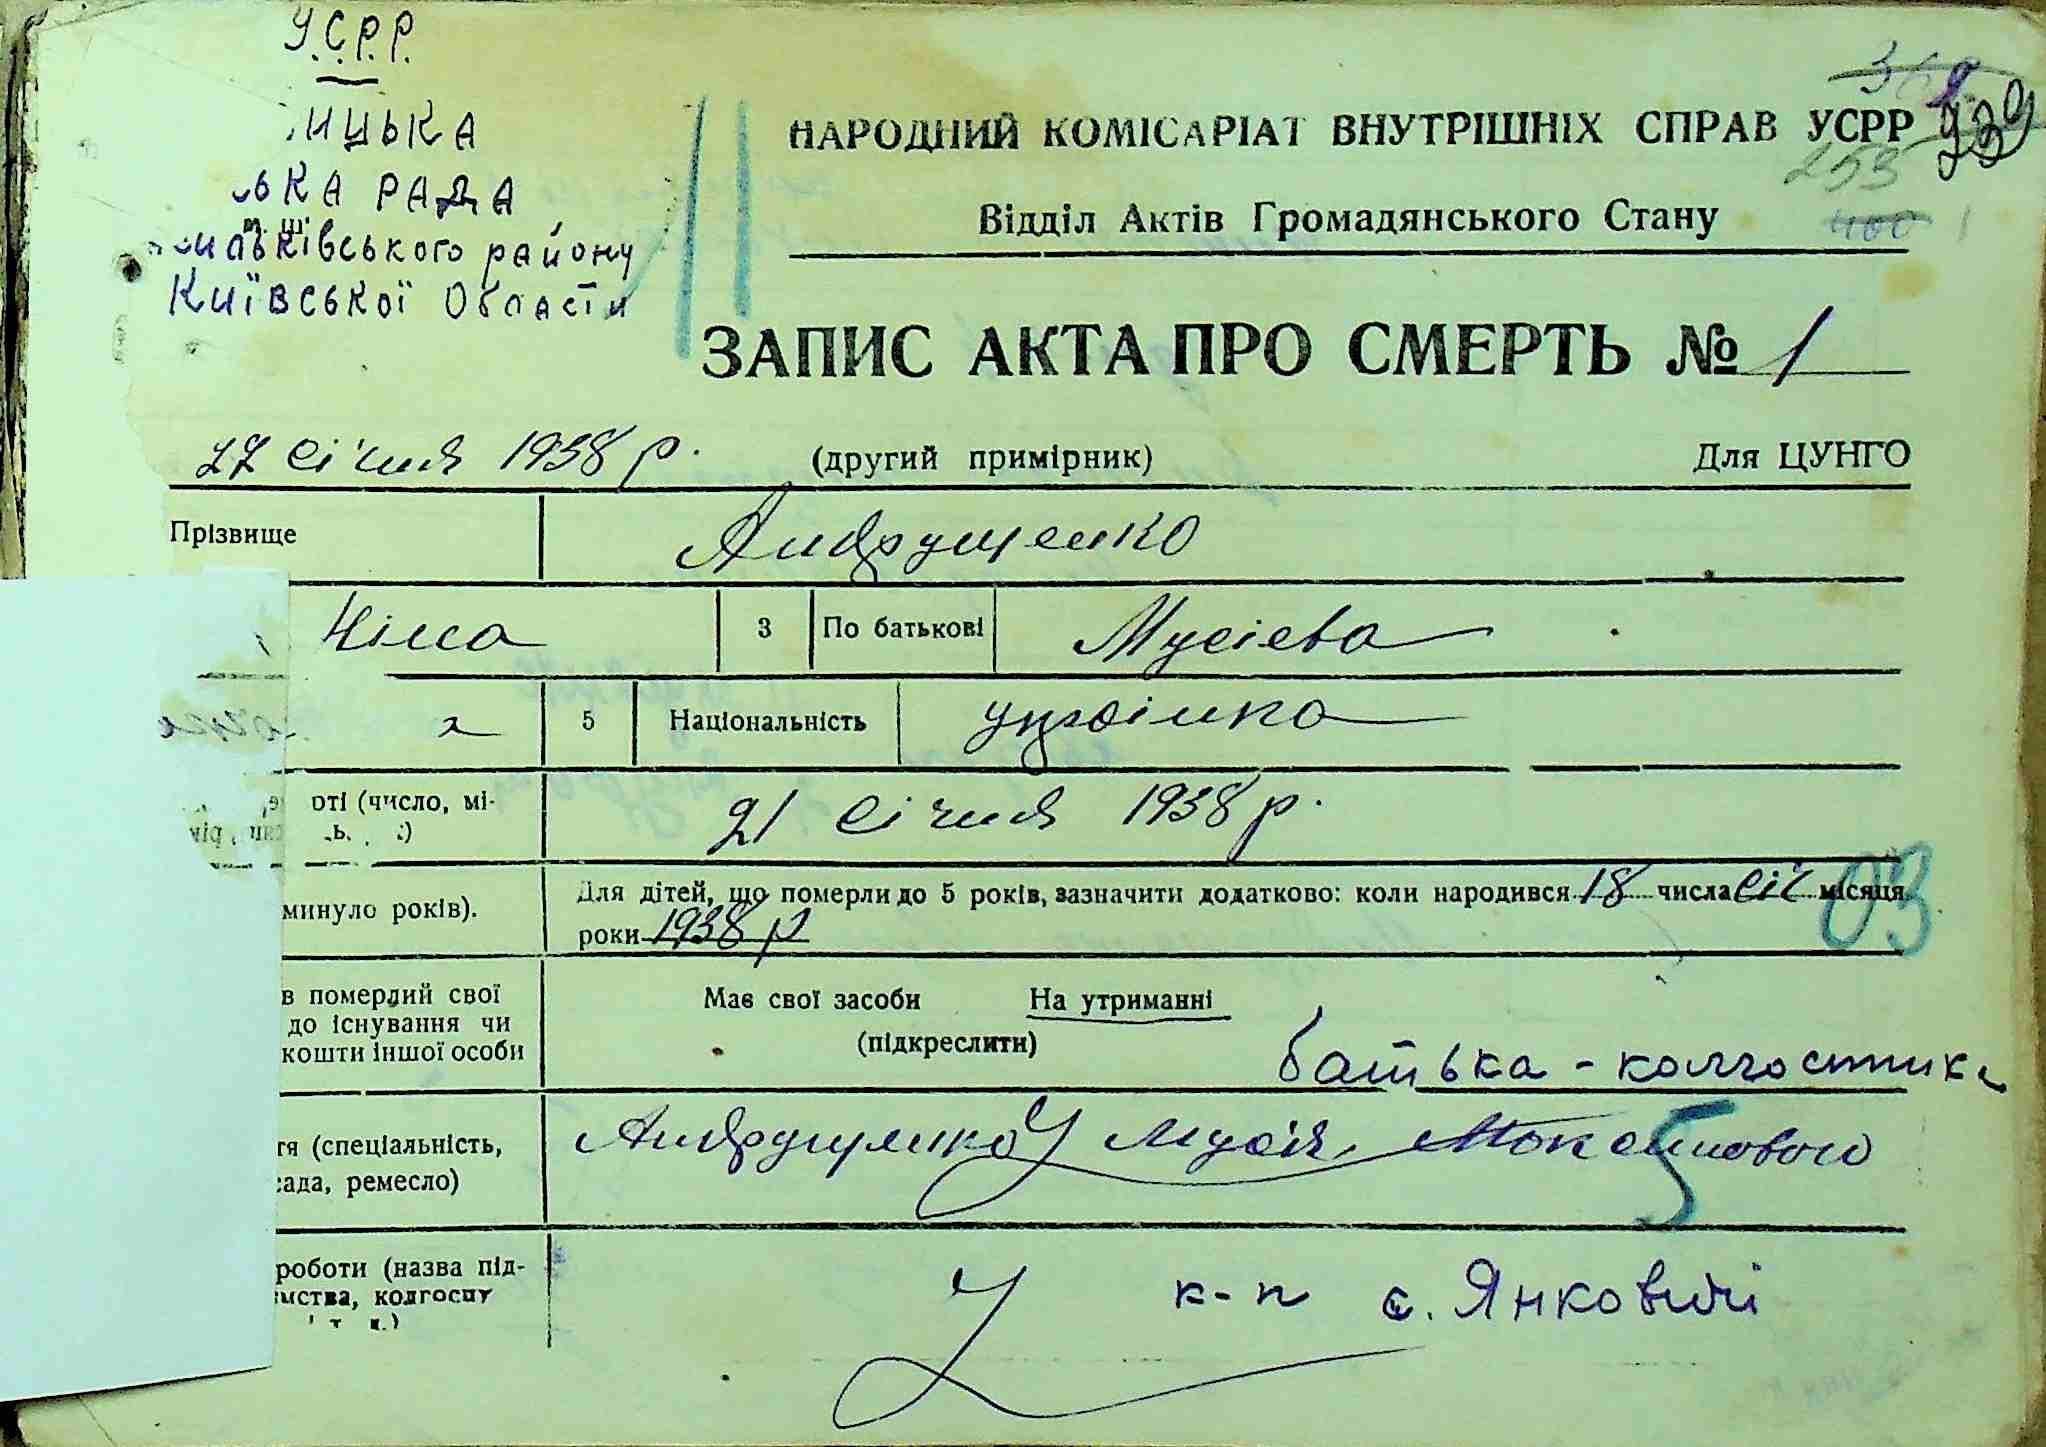 УСРР
ицька
ька рада
ильківського району
Київської Області
НАРОДНИЙ КОМІСАРІАТ ВНУТРІШНІХ СПРАВ УСРР
239
253
400
Відділ Актів Громадянського Стану
ЗАПИС АКТА ПРО СМЕРТЬ № 1
27 січня 1938 р. (другий примірник) Для ЦУНГО
Прізвище Андрущенко
Ніна 3 По батькові Мусієва
5 Національність українка
оті (число, мі-
21 січня 1938 р.
минуло років).
Для дітей, що померли до 5 років, зазначити додатково: коли народився 18 числа січ місяця
роки 1938 р
03
в померлий свої
до існування чи
кошти іншої особи
Має свої засоби На утриманні
(підкреслити)
батька - колгоспника
тя (спеціальність,
сада, ремесло)
Андрущенко Мусія
5
роботи (назва під-
мства, колгоспу
і т. и.)
к-п с. Янковичі